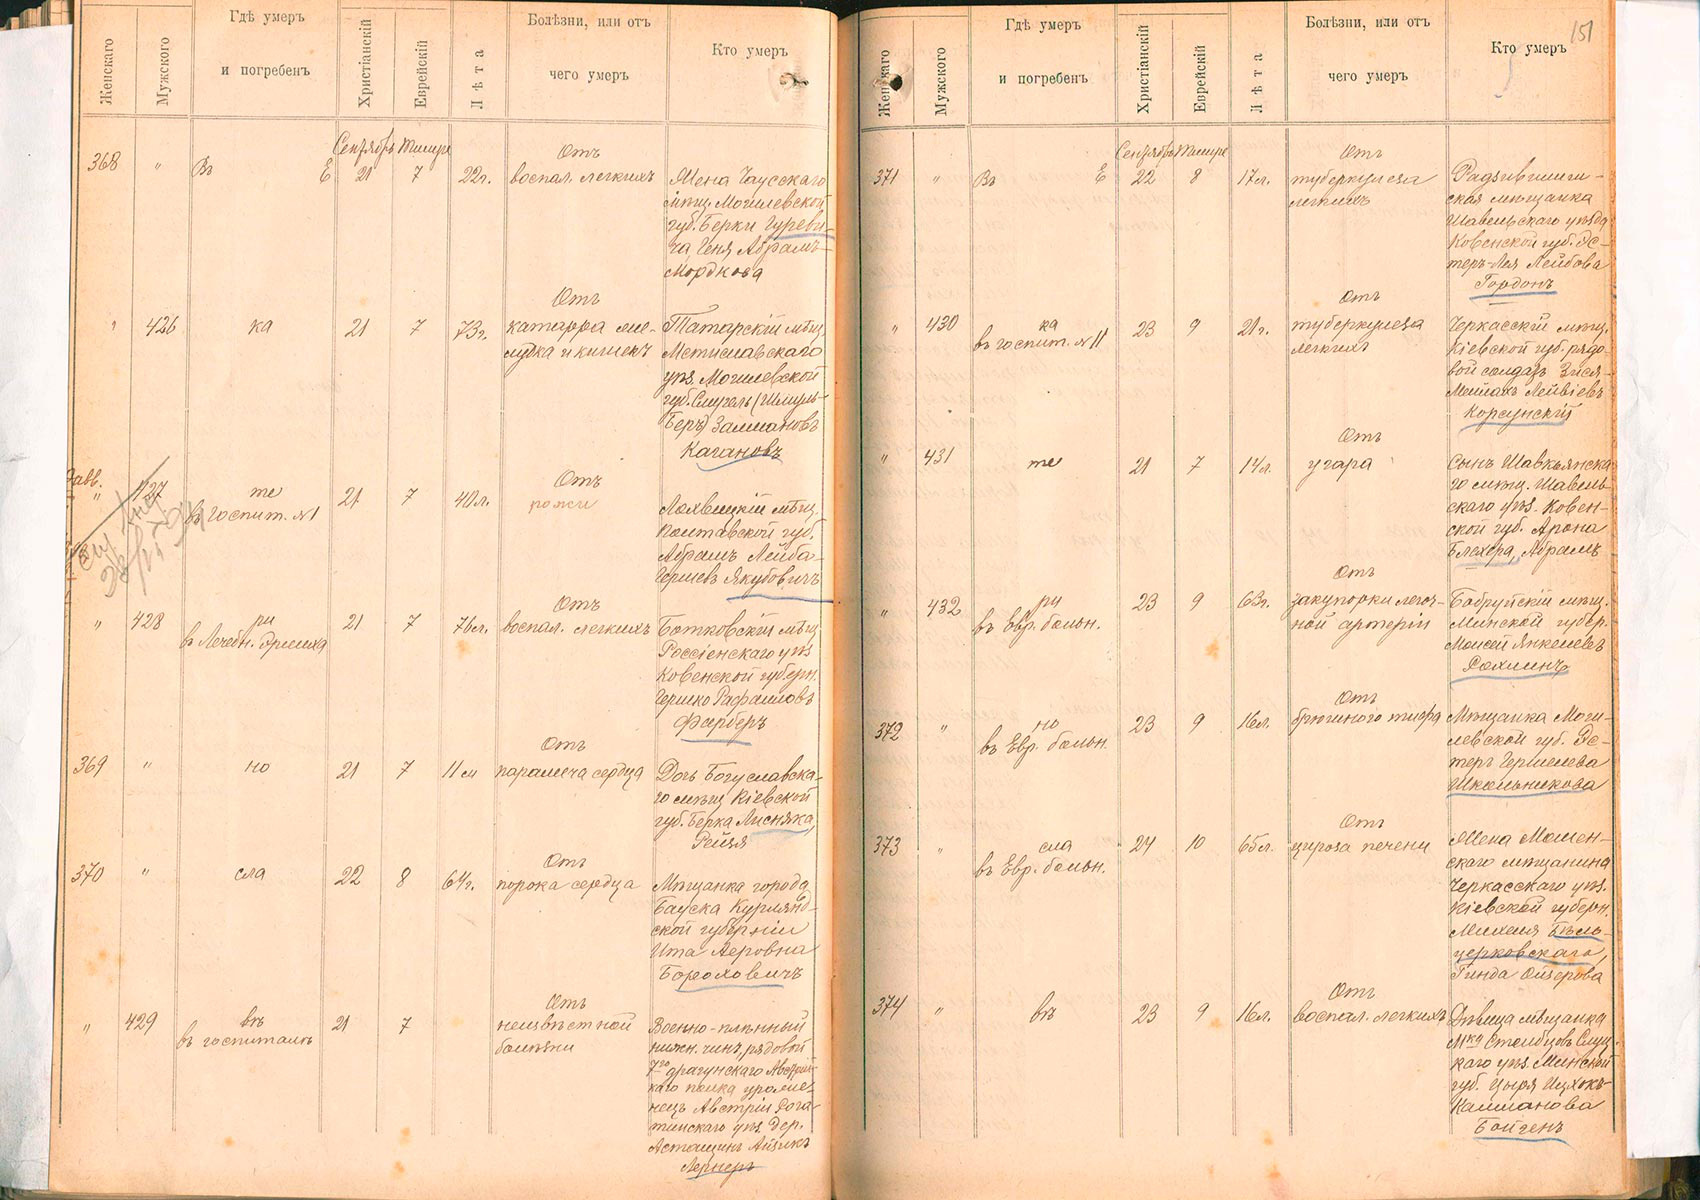 Женскаго
Мужского
Гдѣ умеръ
и погребенъ
Христіанскій
Еврейскій
Лѣта
Болѣзни, или отъ
чего умеръ
Кто умеръ
Сентябрь Тишре
368 " Въ Е 21 7 22г.
Отъ
воспал. легкихъ
Жена Чаусскаго
мѣщ. Могилевской
губ. Берки Гуреви-
ча, Геня Абрамъ-
Мордкова
" 426 ка 21 7 73г.
Отъ
катарра же-
лудка и кишекъ
Татарскій мѣщ.
Мстиславскаго
уѣз. Могилевской
губ. Смуель (Шмуль-
Беръ) Залмановъ
Кагановъ
" 427 те
въ госпит. №1
21 7 40л.
Отъ
рожи
Лохвицкій мѣщ.
Полтавской губ.
Абрамъ Лейба-
Гершевъ Якубовичъ
" 428 ри
въ Лечебн. Фришха
21 7 76л.
Отъ
воспал. легкихъ
Ботковскій мѣщ.
Россіенскаго уѣз.
Ковенской губерн.
Гершко Рафаиловъ
Фарберъ
369 " но 21 7 11м
Отъ
паралича сердца
Дочь Богуславска-
го мѣщ. Кіевской
губ. Берка Лисняка,
Рейзя
370 " сла 22 8 64г.
Отъ
порока сердца
Мѣщанка города
Бауска Курлянд-
ской губерніи
Ита Аеровна
Бороховичъ
" 429 въ
въ госпиталѣ
21 7
Отъ
неизвѣстной
болѣзни
Военно-плѣнный
нижн. чинъ, рядовой
7го драгунскаго Австрій-
каго полка уроже-
нецъ Австріи Рога-
тинскаго уѣз. дер.
Асташинъ Айзикъ
Лернеръ
151
Женскаго
Мужского
Гдѣ умеръ
и погребенъ
Христіанскій
Еврейскій
Лѣта
Болѣзни, или отъ
чего умеръ
Кто умеръ
Сентябрь Тишре
371 " Въ Е 22 8 17л.
Отъ
туберкулеза
легкихъ
Радзивилиш-
ская мѣщанка
Шавельскаго уѣзда
Ковенской губ. Эс-
теръ-Лея Лейбова
Гордонъ
" 430 ка
въ госпит. №11
23 9 21г.
Отъ
туберкулеза
легкихъ
Черкасскій мѣщ.
Кіевской губ. рядо-
вой солдатъ Зися-
Мошахъ Лейвіевъ
Корсунскій
" 431 те 21 7 14л.
Отъ
угара
Сынъ Шавкьянска-
го мѣщ. Шавель-
скаго уѣз. Ковен-
ской губ. Арона
Блехера, Абрамъ
" 432 ри
въ Евр. больн.
23 9 63г.
Отъ
закупорки легоч-
ной артеріи
Бобруйскій мѣщ.
Минской губер.
Моисей Янкелевъ
Рохлинъ
372 " но
въ Евр. больн.
23 9 16л.
Отъ
брюшного тифа
Мѣщанка Моги-
левской губ. Эс-
теръ Гершелева
Школьникова
373 " сла
въ Евр. больн.
24 10 65л.
Отъ
цироза печени
Жена Мошен-
скаго мѣщанина
Черкасскаго уѣз.
Кіевской губерн.
Михеля Бѣло-
церковскаго,
Гинда Ойзерова
374 " въ 23 9 16л.
Отъ
воспал. легкихъ
Дѣвица мѣщанка
Мку Столбцовъ Слуц-
каго уѣз. Минской
губ. Цыря Ицхокъ-
Калмановa
Бойгенъ